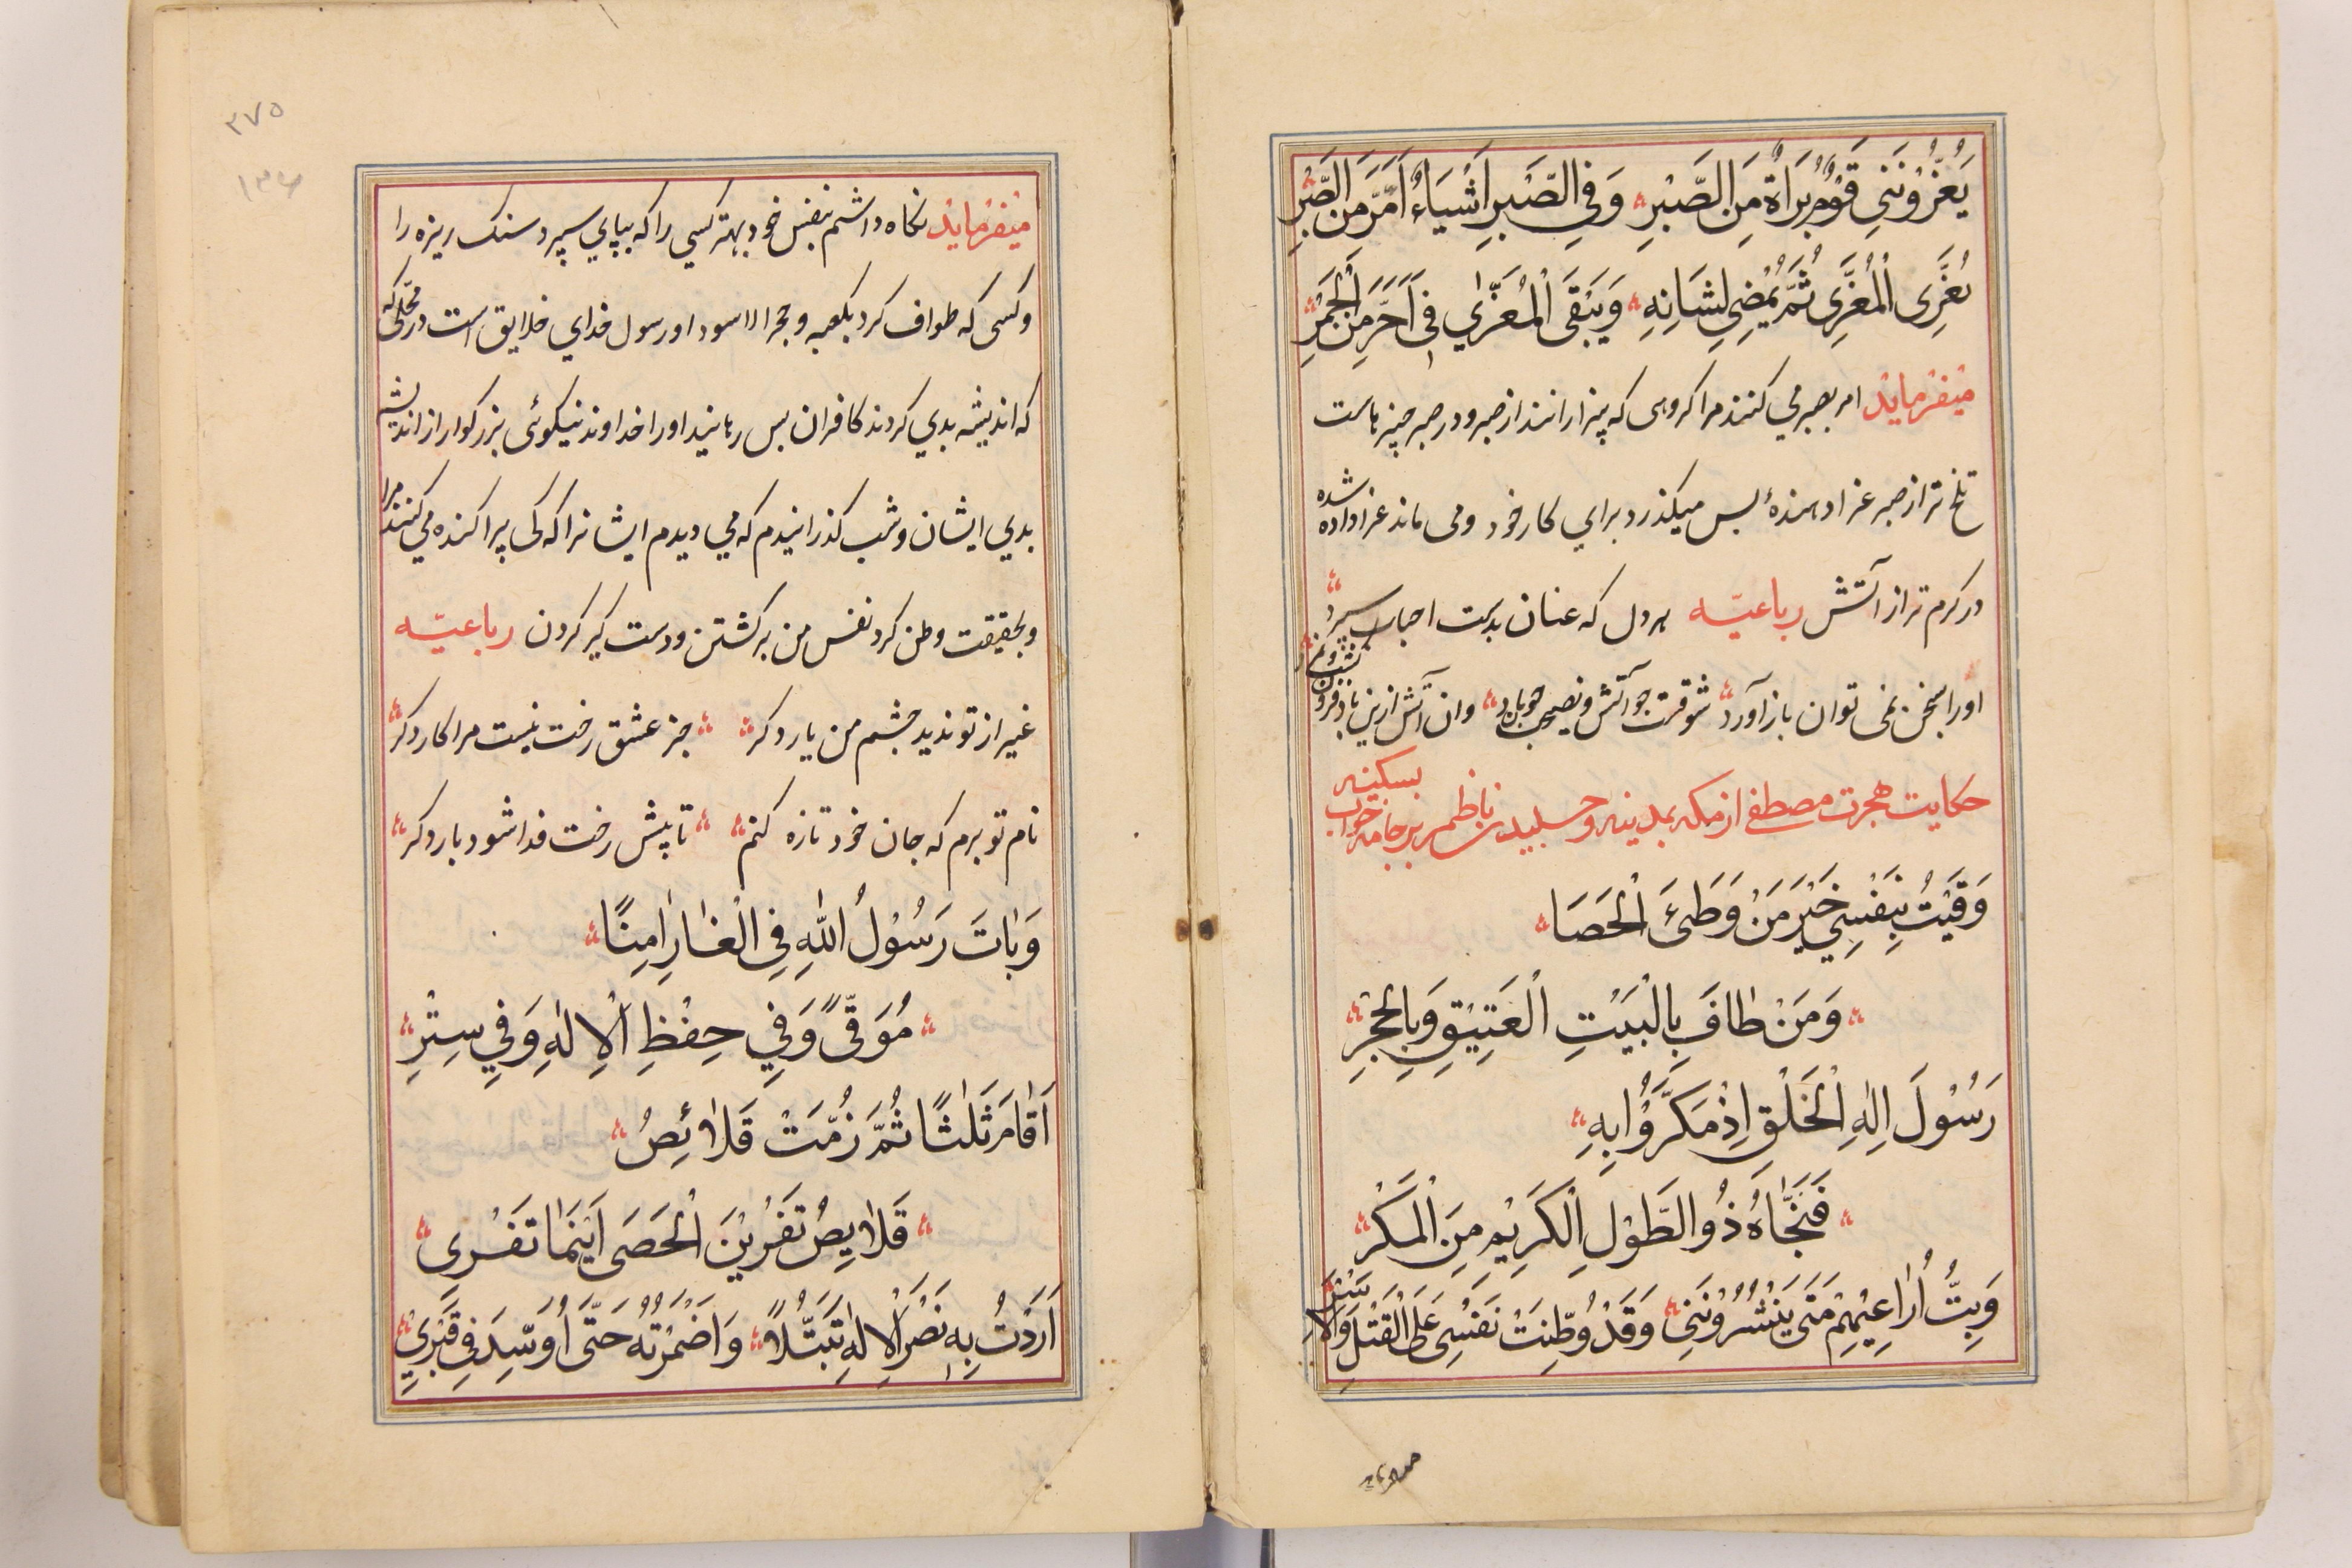 يُعَزُّونَنِي قَوْمٌ بَرَاةٌ مِنَ الصَّبْرِ وَفِي الصَّبْرِ اَشْيَاءٌ اَمَرَّ مِنَ الصَّبْرِ
يُعَزِّى الْمُعَزِّى ثُمَّ يُمْضِي لِشَانِهِ وَيَبْقَى الْمُعَزّٰي فِي اَحَرَّ مِنَ الْجَمْرِ
میفرماید امر بصبر می کنند مرا کروهی که بیزارانند از صبر و در صبر چیزهاست
تلخ تر از صبر عزا دهندهٔ بس میکذرد برای کار خود و می ماند عزا داده شده
در کرم تر از آتش رباعیّه هر دل که عنان بدست احباب سپرد
اورا بسخن نمی توان باز آورد شوقت چو آتش و نصیحت چو باد وان آتش ازین باد فرو
حکایت هجرت مصطفی از مکه بمدینه و خسبیدن ناظم بر جامه خواب بسکینه
وَقَيْتُ بِنَفْسِي خَيْرَ مَنْ وَطِئَ الْحَصَا
وَمَنْ طَافَ بِالْبَيْتِ الْعَتِيْقِ وَبِالْحِجْرِ
رَسُوْلَ اِلٰهِ الْخَلْقِ اِذْ مَكَرُوْا بِهِ
فَنَجَّاهُ ذُو الطَّوْلِ الْكَرِيْمِ مِنَ الْمَكْرِ
وَبِتُّ اُرَاعِيْهِمْ مَتَى يَنْشُرُوْنَنِي وَقَدْ وُطِّنَتْ نَفْسِى عَلَى الْقَتْلِ وَالْاَسْرِ
۲۷۵
۱۳۶
میفرماید نکاه داشتم بنفس خود بهتر کسی را که بپای سپرد سنک ریزه را
و کسی که طواف کرد بکعبه و حجر الاسود او رسول خدای خلایق است در محلّی که
که اندیشه بدی کردند کافران بس رهانید اورا خداوند نیکوئی بزرکوار از اندیشه
بدی ایشان و شب کذرانیدم که می دیدم ایشانرا که کی پراکنده می کنند مرا
و بحقیقت وطن کرد نفس من بر کشتن و دست کیر کردن رباعیّه
غیر از تو ندید چشم من یار دکر جز عشق رخت نیست مرا کار دکر
نام تو برم که جان خود تازه کنم تا پیش رخت فدا شود بار دکر
وَبَاتَ رَسُوْلُ اللهِ فِي الْغَارِ اٰمِنًا
مُوَقًّى وَفِي حِفْظِ الْاِلٰهِ وَفِي سِتْرِ
اَقَامَ ثَلٰثًا ثُمَّ زُمَّتْ قَلَائِصُ
قَلَايِصُ تَفْرِيْنَ الْحَصَى اَيْنَمَا تَفْرِي
اَرَدْتُ بِهِ نَصْرَ الْاِلٰهِ تَبَتُّلًا وَاَضْمَرْتُهُ حَتّٰى اُوَسَّدَ فِي قَبْرِيْ